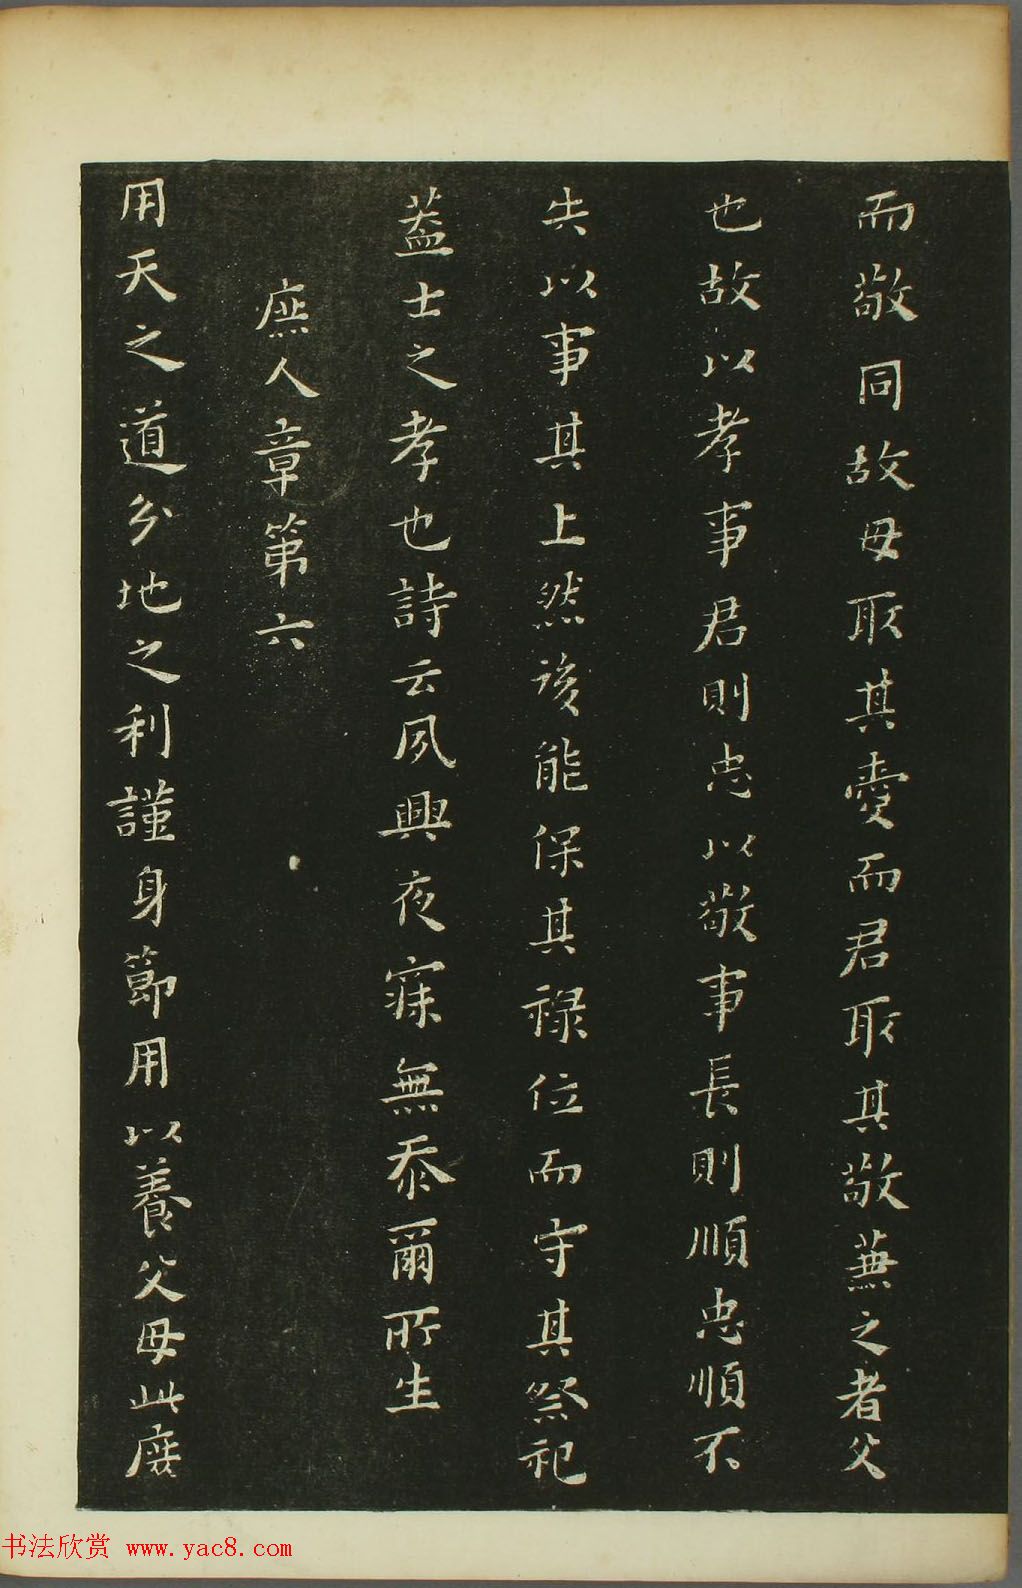 而敬同故母取其愛而君取其敬兼之者父
也故以孝事君則忠以敬事長則順忠順不
失以事其上然後能保其祿位而守其祭祀
蓋士之孝也詩云夙興夜寐無忝爾所生
庶人章第六
用天之道分地之利謹身節用以養父母此庶
书法欣赏 www.yac8.com